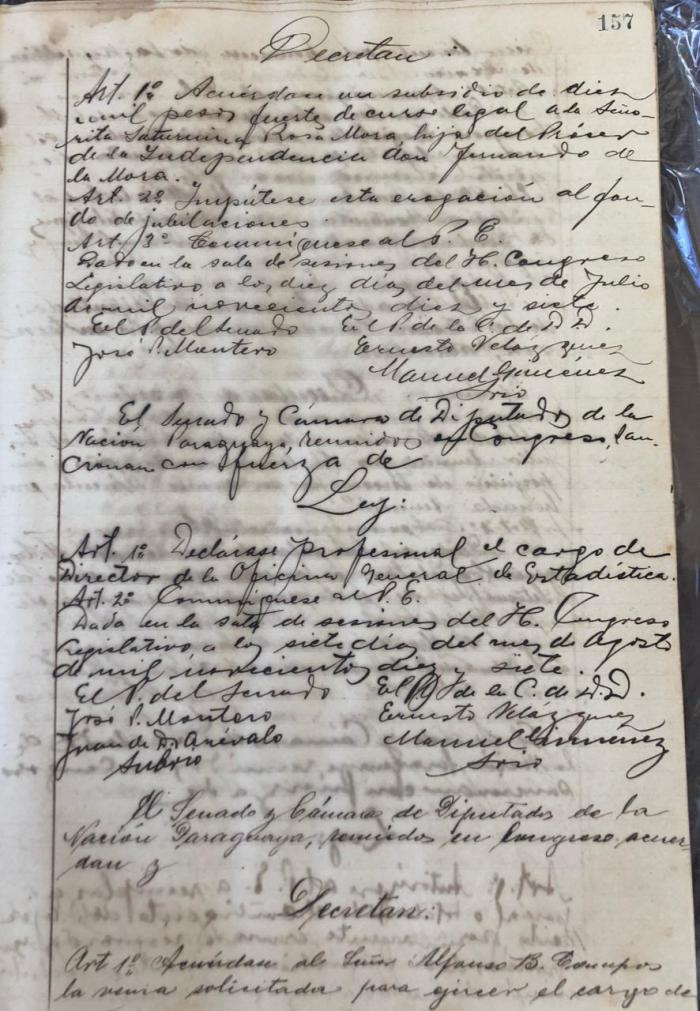 157
Decretan:
Art. 1º Acuérdan un subsidio de diez
mil pesos fuerte de curso legal a la Seño-
rita Saturnina Rosa Mora hija del Prócer
de la Independencia don Fernando de
la Mora.
Art. 2º Impútese esta erogación al fon-
do de jubilaciones.
Art. 3º Comuníquese al P. E.
Dado en la sala de sesiones del H. Congreso
Legislativo a los diez días del mes de Julio
de mil novecientos diez y siete.
El P. del Senado El P. de la C. de D. D.
José P. Montero Ernesto Velázquez
Manuel Giménez
Srio
El Senado y Cámara de Diputados de la
Nación Paraguaya, reunidos en Congreso, san-
cionan con fuerza de
Ley:
Art. 1º Declárase profesional el cargo de
Director de la Oficina General de Estadística.
Art. 2º Comuníquese al P. E.
Dada en la sala de sesiones del H. Congreso
Legislativo a los siete días del mes de Agosto
de mil novecientos diez y siete.
El P. del Senado El P. de la C. de D. D.
José P. Montero Ernesto Velázquez
Juan de D. Arévalo Manuel Giménez
Srio
El Senado y Cámara de Diputados de la
Nación Paraguaya, reunidos en Congreso, acuer-
dan y
Decretan:
Art 1º Acuérdan al Señor Alfonso B. Campos
la venia solicitada para ejercer el cargo de